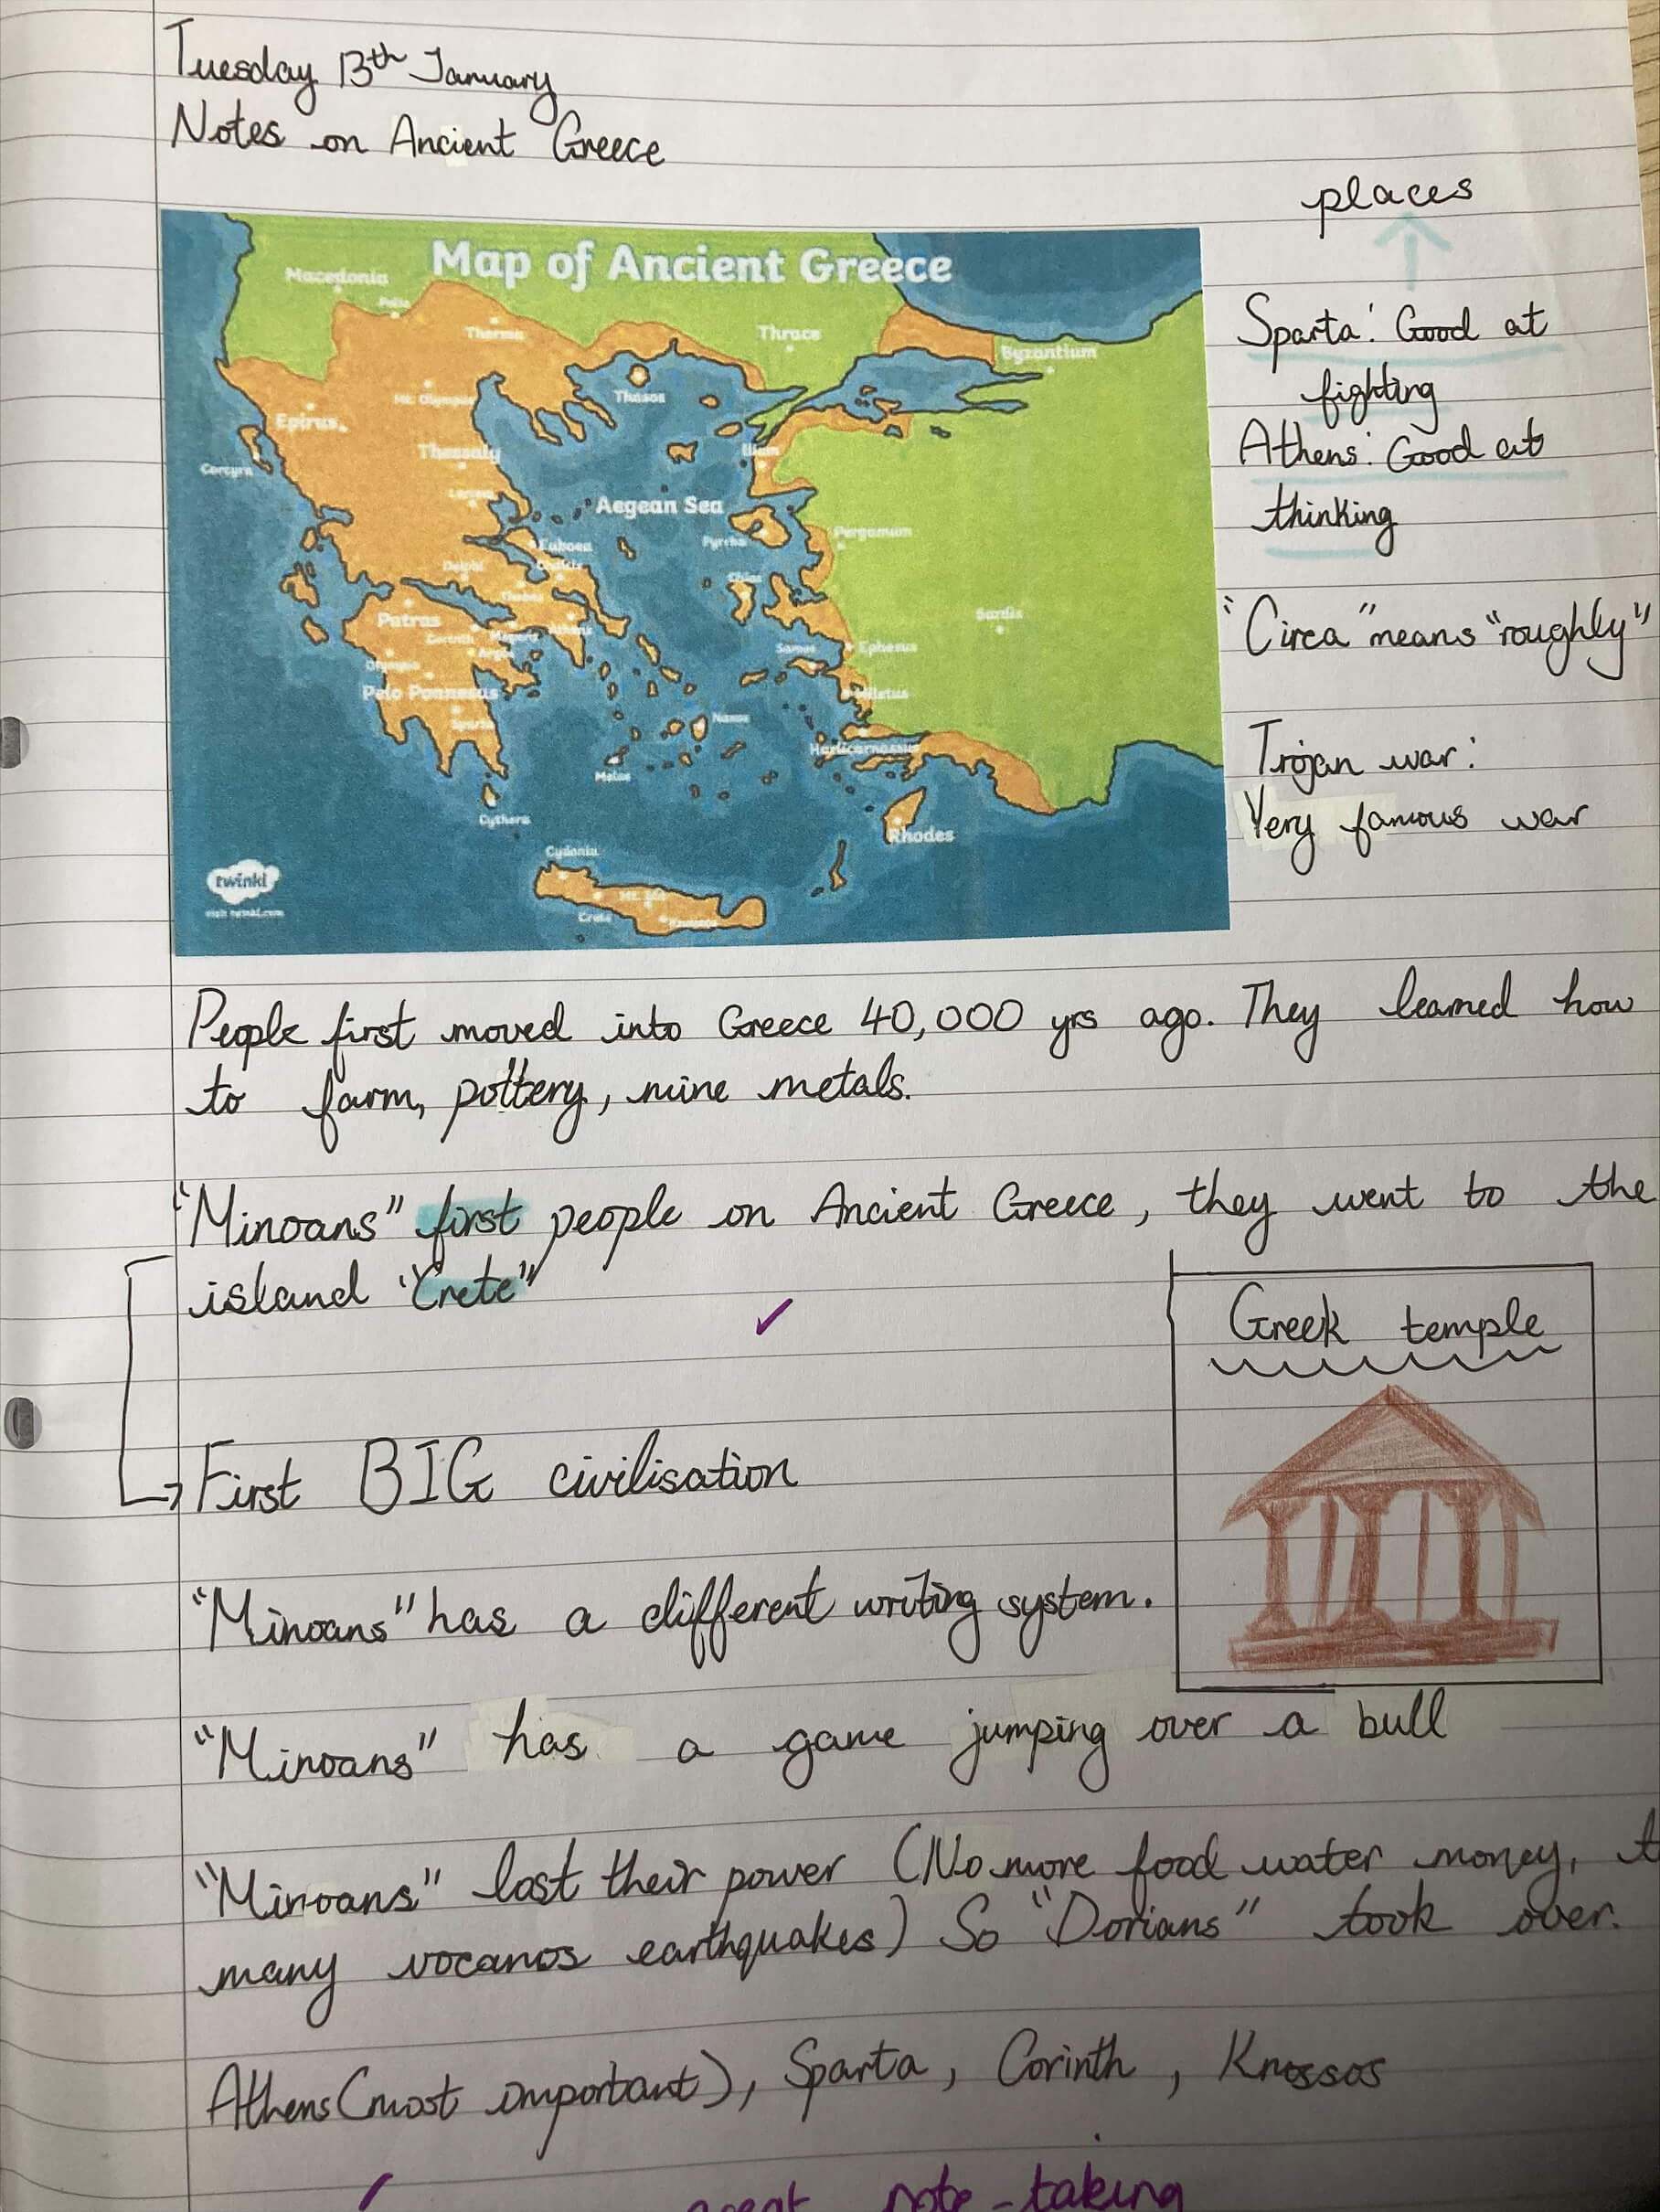 Tuesday 13th January
Notes on Ancient Greece
places
Sparta: Good at
fighting
Athens: Good at
thinking
"Circa" means "roughly"
Trojan war:
Very famous war
Map of Ancient Greece
Macedonia
Pella
Therma
Thrace
Byzantium
Mt. Olympus
Thasos
Epirus
Thessaly
Ilium
Corcyra
Larissa
Aegean Sea
Pergamum
Euboea
Pyrrha
Delphi
Chalcis
Chios
Thebes
Sardis
Patras
Corinth
Megara
Athens
Argos
Samos
Ephesus
Olympia
Pelo Ponnesus
Miletus
Sparta
Naxos
Harlicarnassus
Melos
Cythera
Rhodes
Cydonia
twinkl
visit twinkl.com
Mt. Ida
Crete
Knossos
People first moved into Greece 40,000 yrs ago. They learned how
to farm, pottery, mine metals.
"Minoans" first people on Ancient Greece, they went to the
island "Crete"
Greek temple
First BIG civilisation
"Minoans" has a different writing system.
"Minoans" has a game jumping over a bull
"Minoans" lost their power (No more food water money, t
many vocanos earthquakes) So "Dorians" took over.
Athens (most important), Sparta, Corinth, Knossos
great note-taking